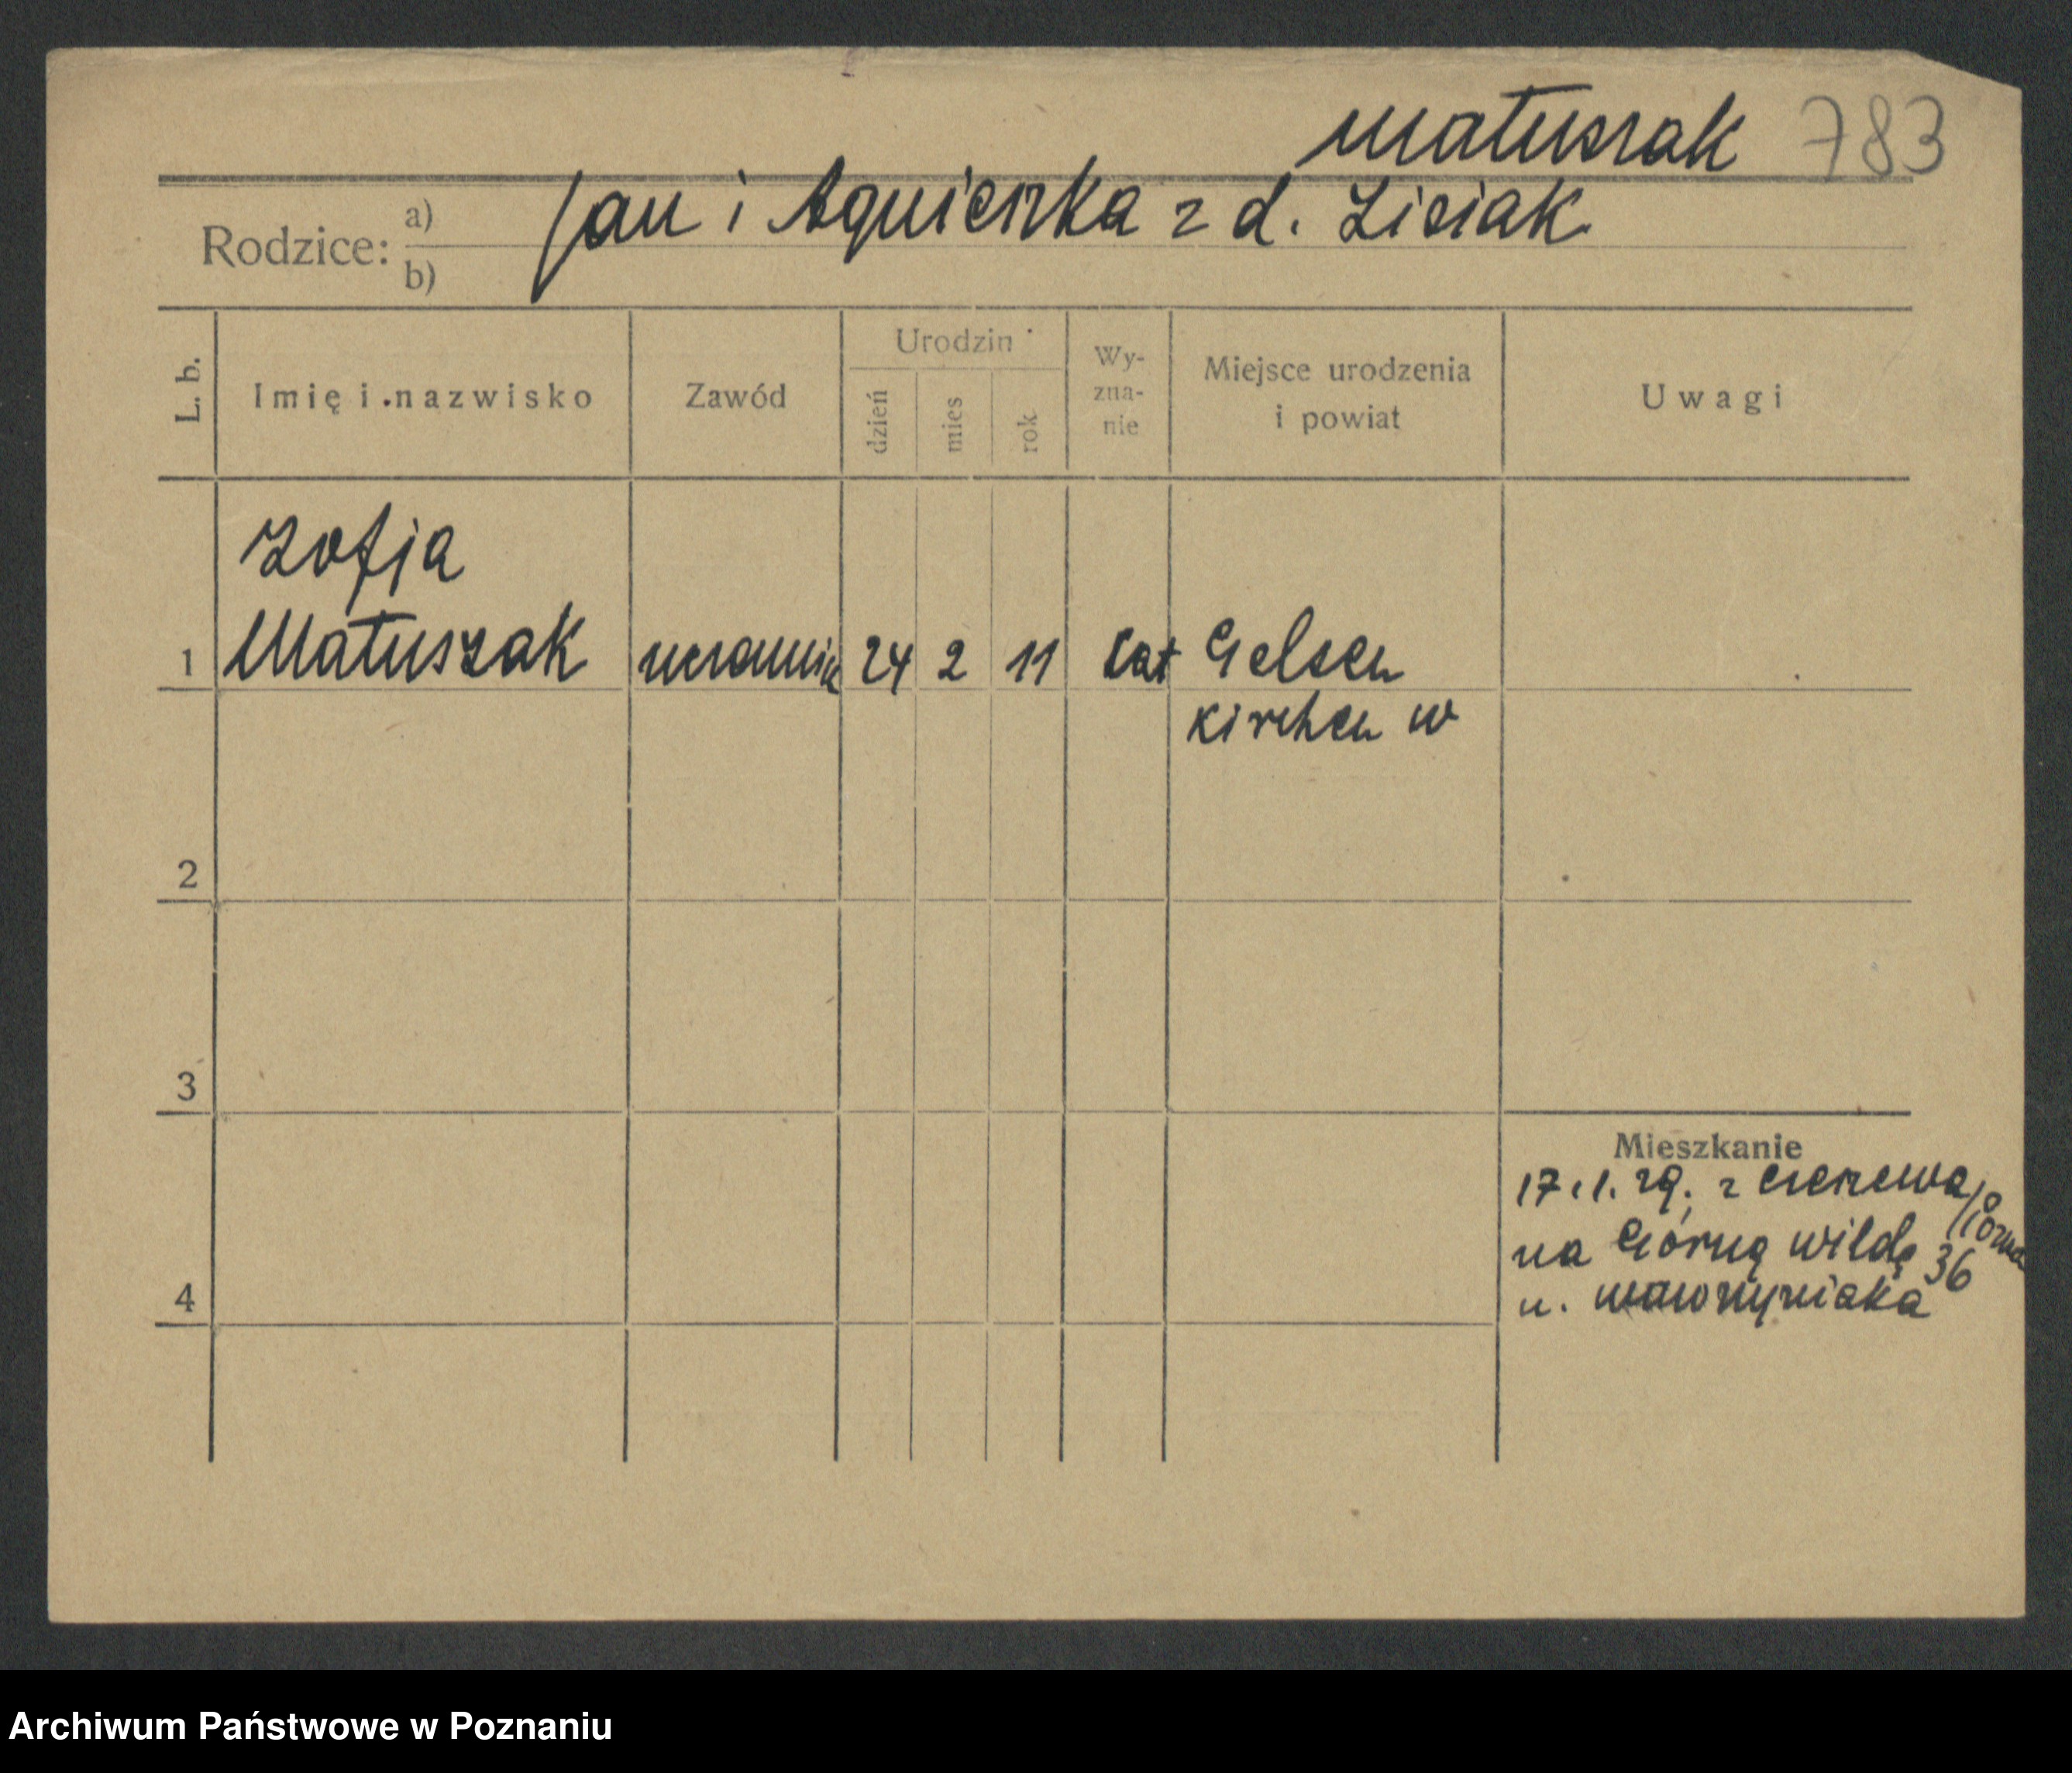 Matuszak 783
Rodzice: a) Jan i Agnieszka z d. Lisiak
b)
L. b.
Imię i nazwisko
Zawód
Urodzin
dzień
mies
rok
Wy-
zna-
nie
Miejsce urodzenia
i powiat
Uwagi
Zofja
1 Matuszak 24 2 11 kat Gelsen
kirchen W
2
3
Mieszkanie
17.1.29. z
na Górną Wildę 36
4 u. Wawrzyniaka
Archiwum Państwowe w Poznaniu